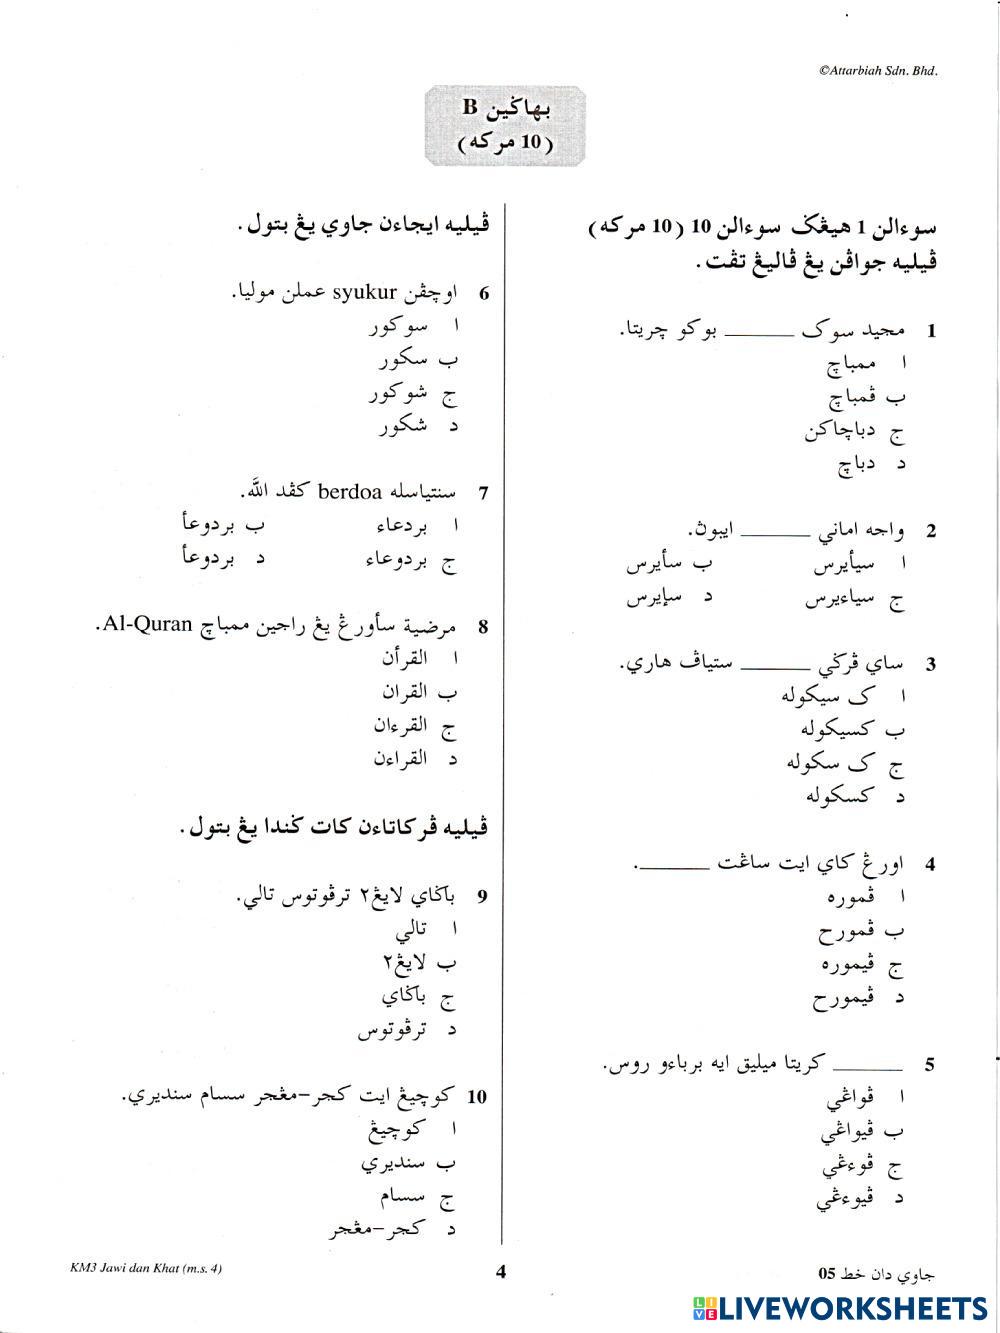 ©Attarbiah Sdn. Bhd.
بهاݢين B
(10 مركه)
سوءالن 1 هيڠݢ سوءالن 10 (10 مركه)
ڤيليه جواڤن يڠ ڤاليڠ تڤت.
1 مجيد سوک ______ بوكو چريتا.
ا ممباچ
ب ڤمباچ
ج دباچاكن
د دباچ
2 واجه اماني ______ ايبوڽ.
ا سيأيرس
ب سأيرس
ج سياءيرس
د سإيرس
3 ساي ڤرݢي ______ ستياڤ هاري.
ا ک سيكوله
ب كسيكوله
ج ک سكوله
د كسكوله
4 اورڠ كاي ايت ساڠت ______.
ا ڤموره
ب ڤمورح
ج ڤيموره
د ڤيمورح
5 ______ كريتا ميليق ايه برباءو روس.
ا ڤواڠي
ب ڤيواڠي
ج ڤوءڠي
د ڤيوءڠي
ڤيليه ايجاءن جاوي يڠ بتول.
6 اوچڤن syukur عملن موليا.
ا سوكور
ب سكور
ج شوكور
د شكور
7 سنتياسله berdoa كڤد اللّٰه.
ا بردعاء
ب بردوعأ
ج بردوعاء
د بردوعأ
8 مرضية سأورڠ يڠ راجين ممباچ Al-Quran.
ا القرأن
ب القران
ج القرءان
د القراءن
ڤيليه ڤركاتاءن كات ݢندا يڠ بتول.
9 باݢاي لايڠ٢ ترڤوتوس تالي.
ا تالي
ب لايڠ٢
ج باݢاي
د ترڤوتوس
10 كوچيڠ ايت كجر-مڠجر سسام سنديري.
ا كوچيڠ
ب سنديري
ج سسام
د كجر-مڠجر
KM3 Jawi dan Khat (m.s. 4)
4
جاوي دان خط 05
LIVE LIVEWORKSHEETS